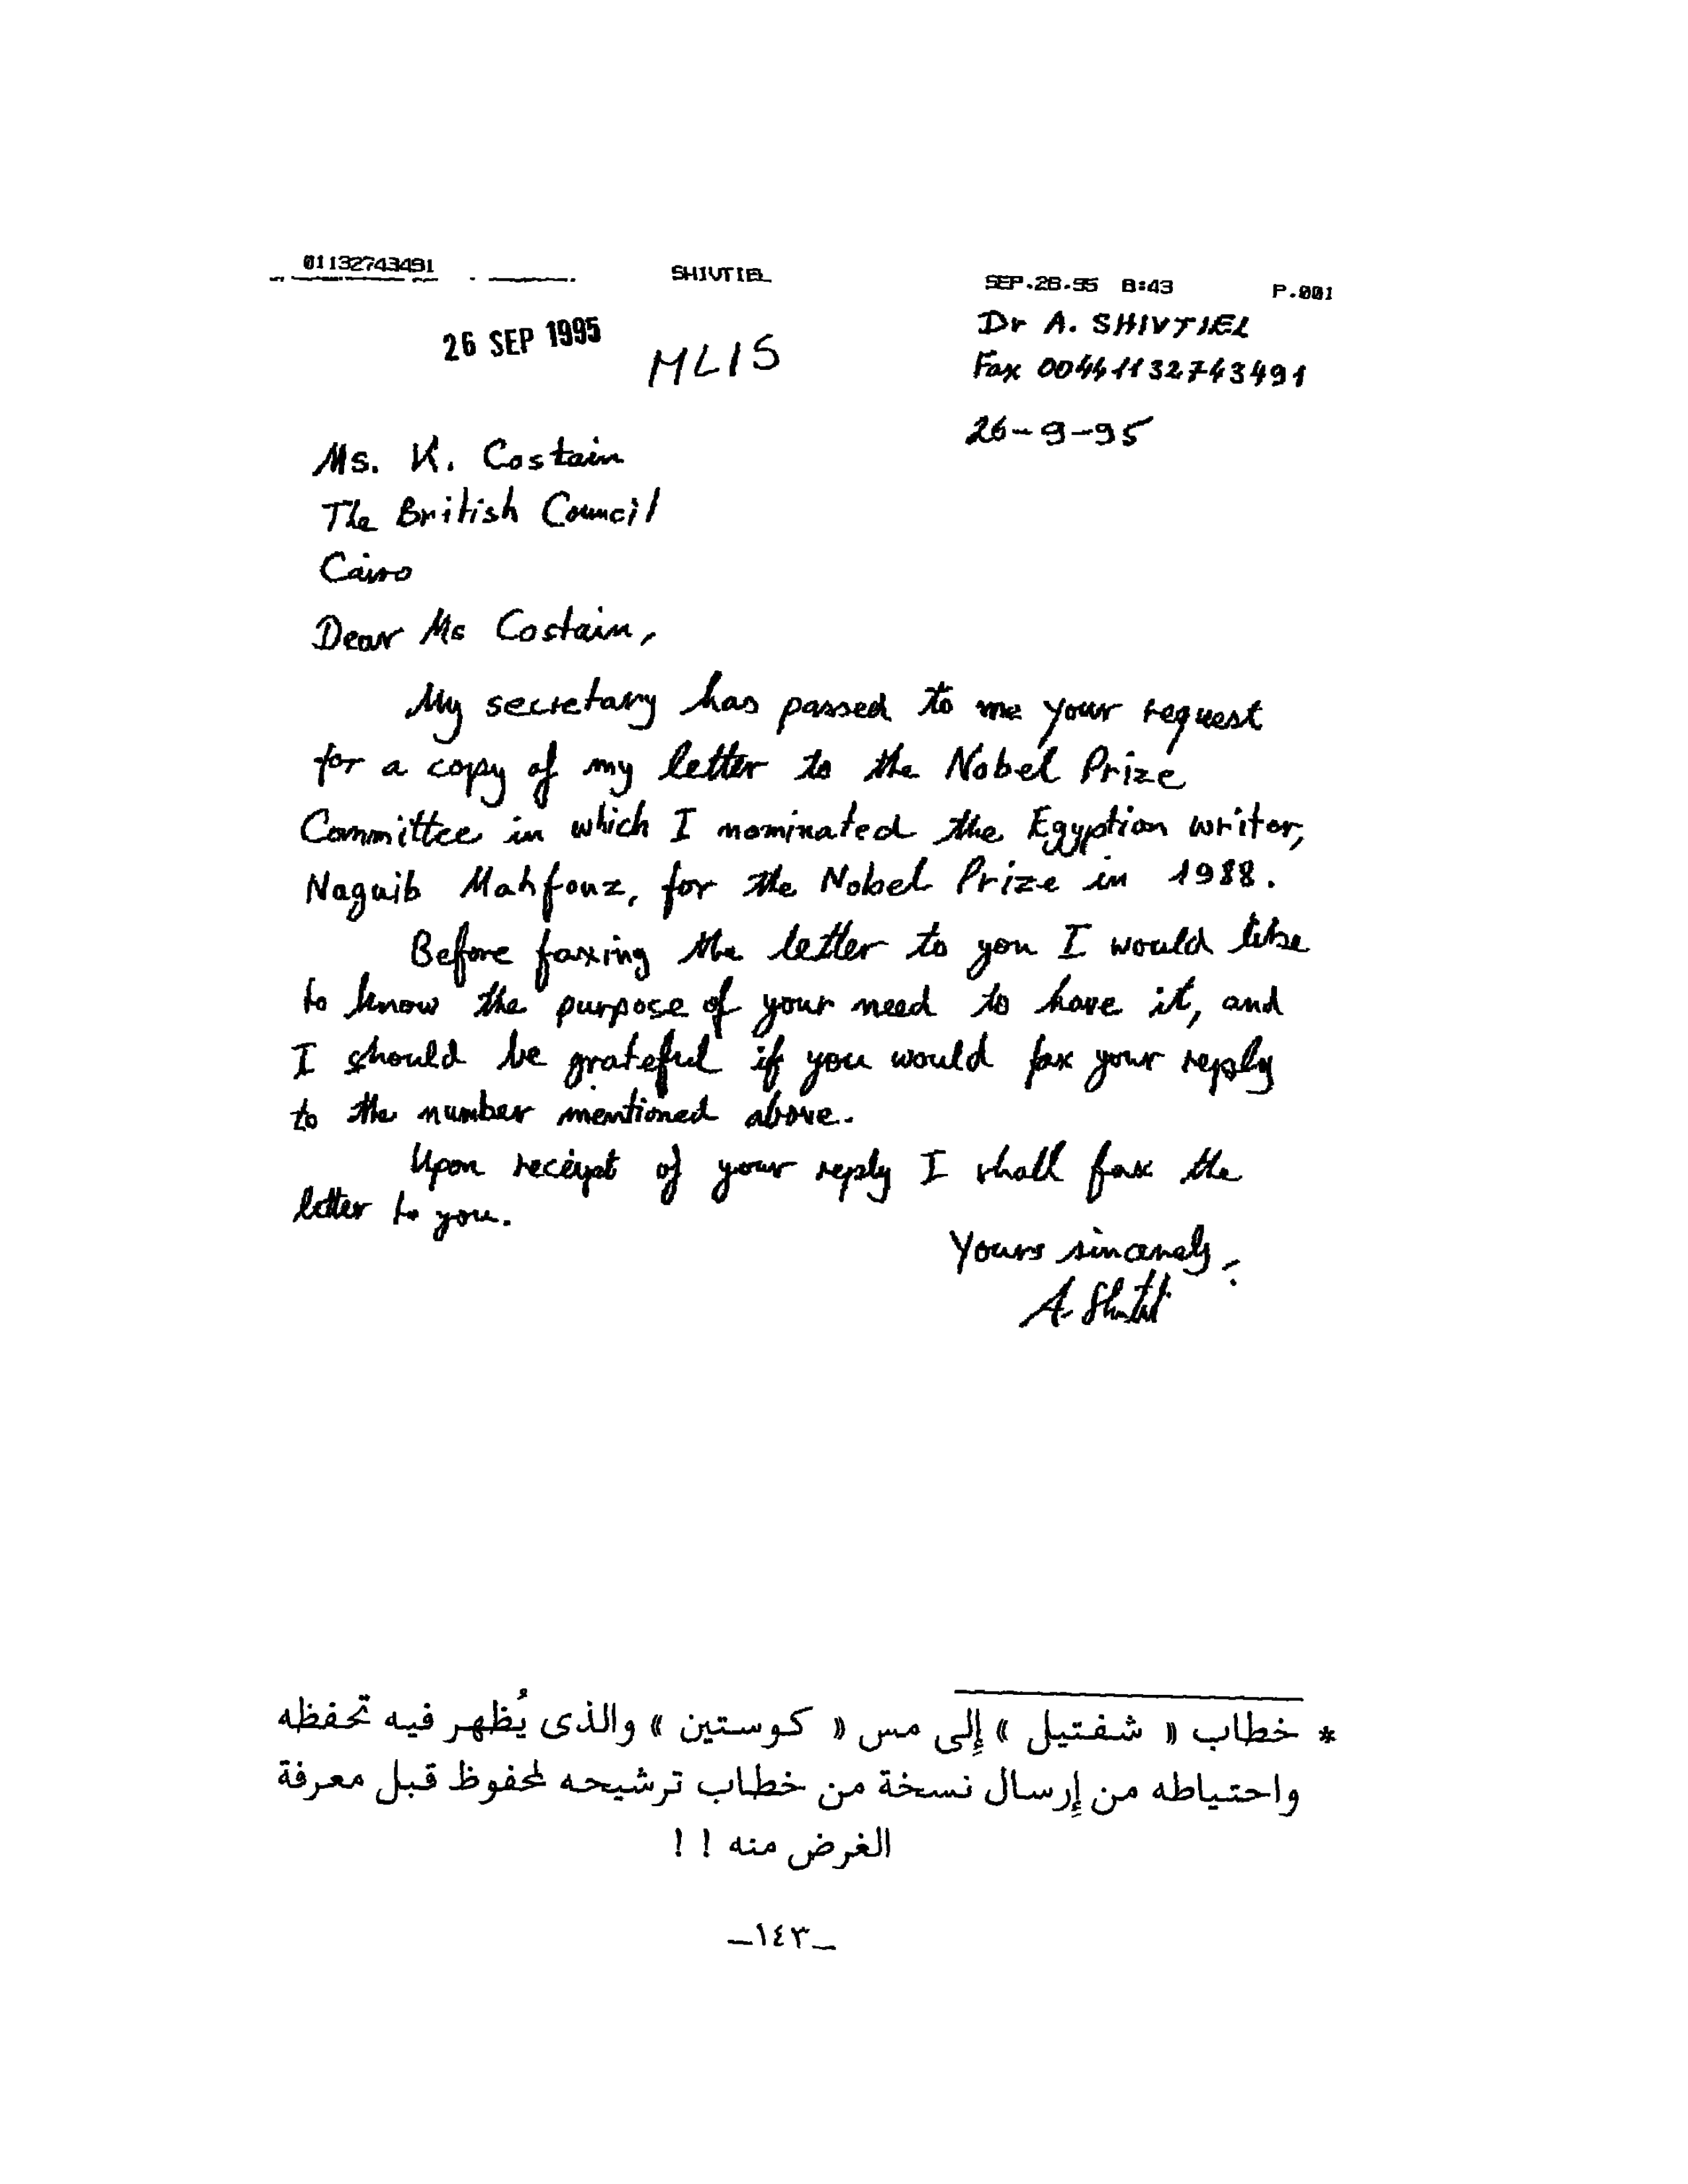 01132743491 SHIVTIEL SEP.26.95 8:43 P.001
26 SEP 1995
MLIS
Dr A. SHIVTIEL
Fax 00441132743491
26-9-95
Ms. K. Costain
The British Council
Cairo
Dear Ms Costain,
My secretary has passed to me your request
for a copy of my letter to the Nobel Prize
Committee in which I nominated the Egyption writer,
Naguib Mahfouz, for the Nobel Prize in 1988.
Before faxing the letter to you I would like
to know the purpose of your need to have it, and
I should be grateful if you would fax your reply
to the number mentioned above.
Upon receipt of your reply I shall fax the
letter to you.
Yours sincerely,
A. Shivtiel
* خطاب « شفتيل » إلى مس « كوستين » والذى يُظهر فيه تحفظه
واحتياطه من إرسال نسخة من خطاب ترشيحه لمحفوظ قبل معرفة
الغرض منه ! !
_١٤٣_